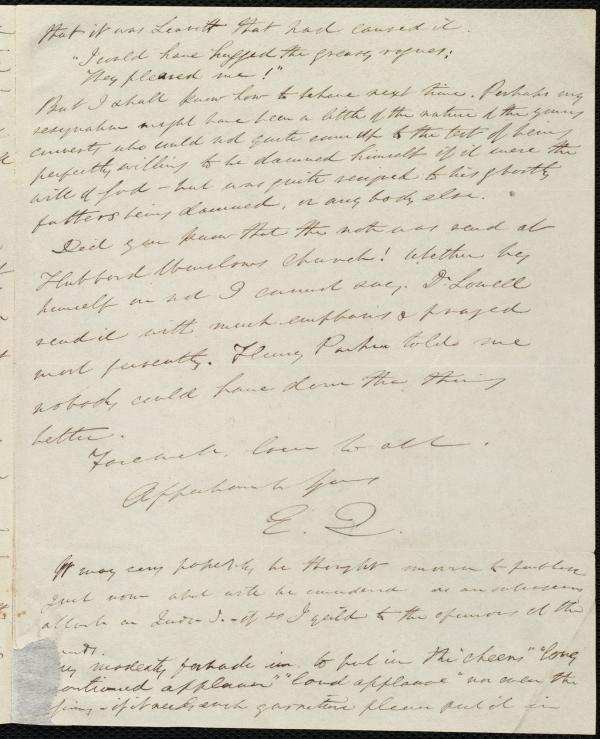 that it was Leavitt that had caused it.
"I could have hugged the greasy rogues;
They pleased me!"
But I shall know how to behave next time. Perhaps my
resignation might have been a little of the nature of the young
convert, who could not quite come up to the test of being
perfectly willing to be damned himself if it were the
will of God – but was quite resigned to his ghostly
fathers being damned, or any body else.
Did you know that the note was read at
Hubbard Winslows Church! Whether by
himself or not I cannot say. Dr. Lowell
read it with much emphasis & prayed
most fervently. Henry Parker told me
nobody could have done the thing
better.
Farewell. Love to all.
Affectionately Yours
E. Q.
It may very possibly be thought to publish
just now and will be considered as an
attack on – if so I yield to the opinions of the
my modesty forbade me to put in the "cheers" "long
continued applause" "loud applause" nor even the
– if it needs such garniture please put it in